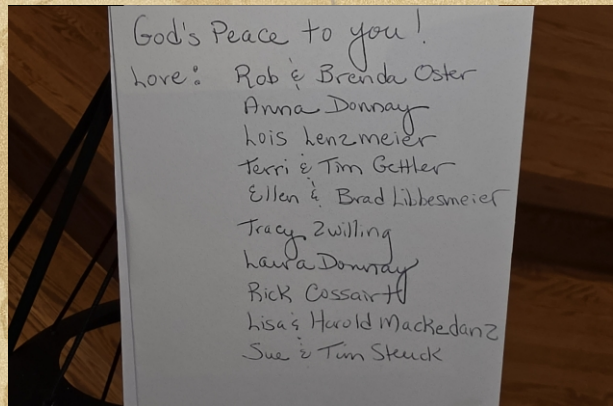 God's Peace to you!
Love: Rob & Brenda Oster
Anna Donnay
Lois Lenzmeier
Terri & Tim Gettler
Ellen & Brad Libbesmeier
Tracy Zwilling
Laura Donnay
Rick Cossairt
Lisa & Harold Mackedanz
Sue & Tim Steuck